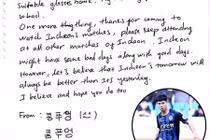 suitable glasses home.
school.
One more thything, thanks for coming to
watch Incheon's matches, please keep attending
at all other matches of Incheon. Incheon
might have some bad days along with good days.
However, let's believe that Incheon's tomorrow will
always be better than its yesterday.
I believe and hope you do too
From : 콩푸엉 (신)
콩푸엉